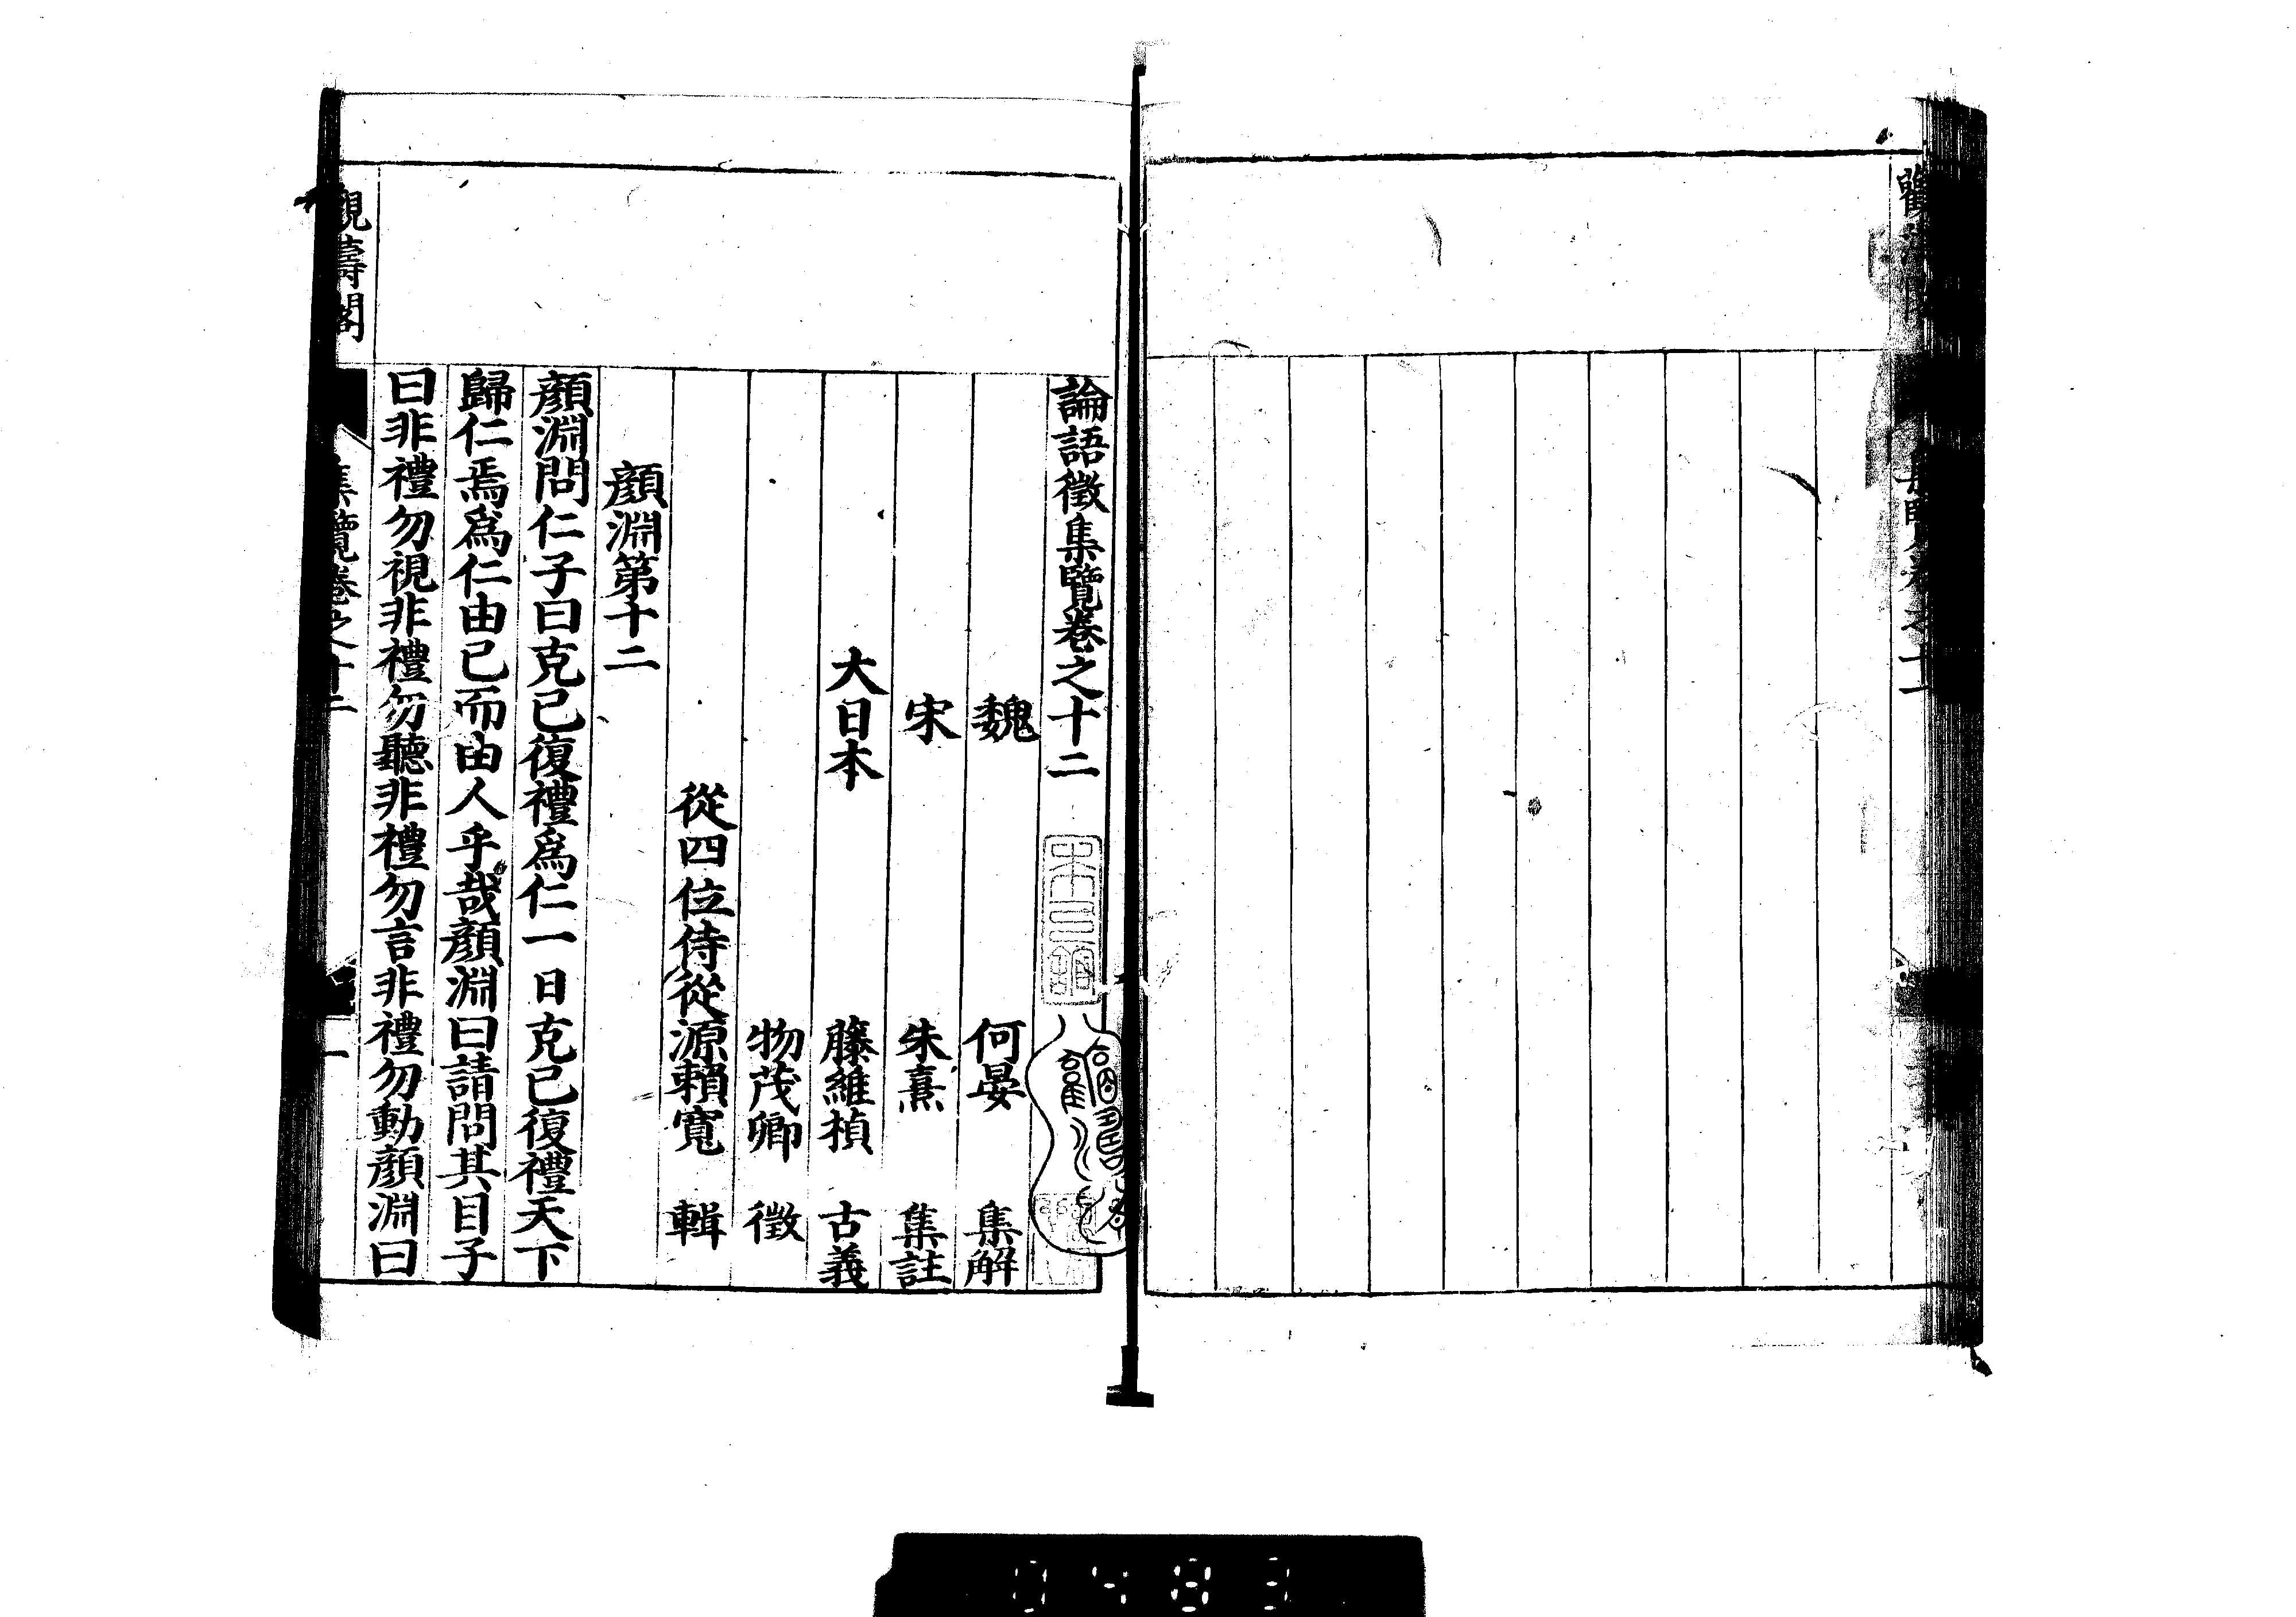 論語徵集覽卷之十二
魏 何晏 集解
宋 朱熹 集註
大日本 藤維楨 古義
物茂卿 徵
從四位侍從源賴寬 輯
顏淵第十二
顏淵問仁子曰克己復禮爲仁一日克己復禮天下
歸仁焉爲仁由己而由人乎哉顏淵曰請問其目子
曰非禮勿視非禮勿聽非禮勿言非禮勿動顏淵曰
觀濤閣 集覽卷之十二 一